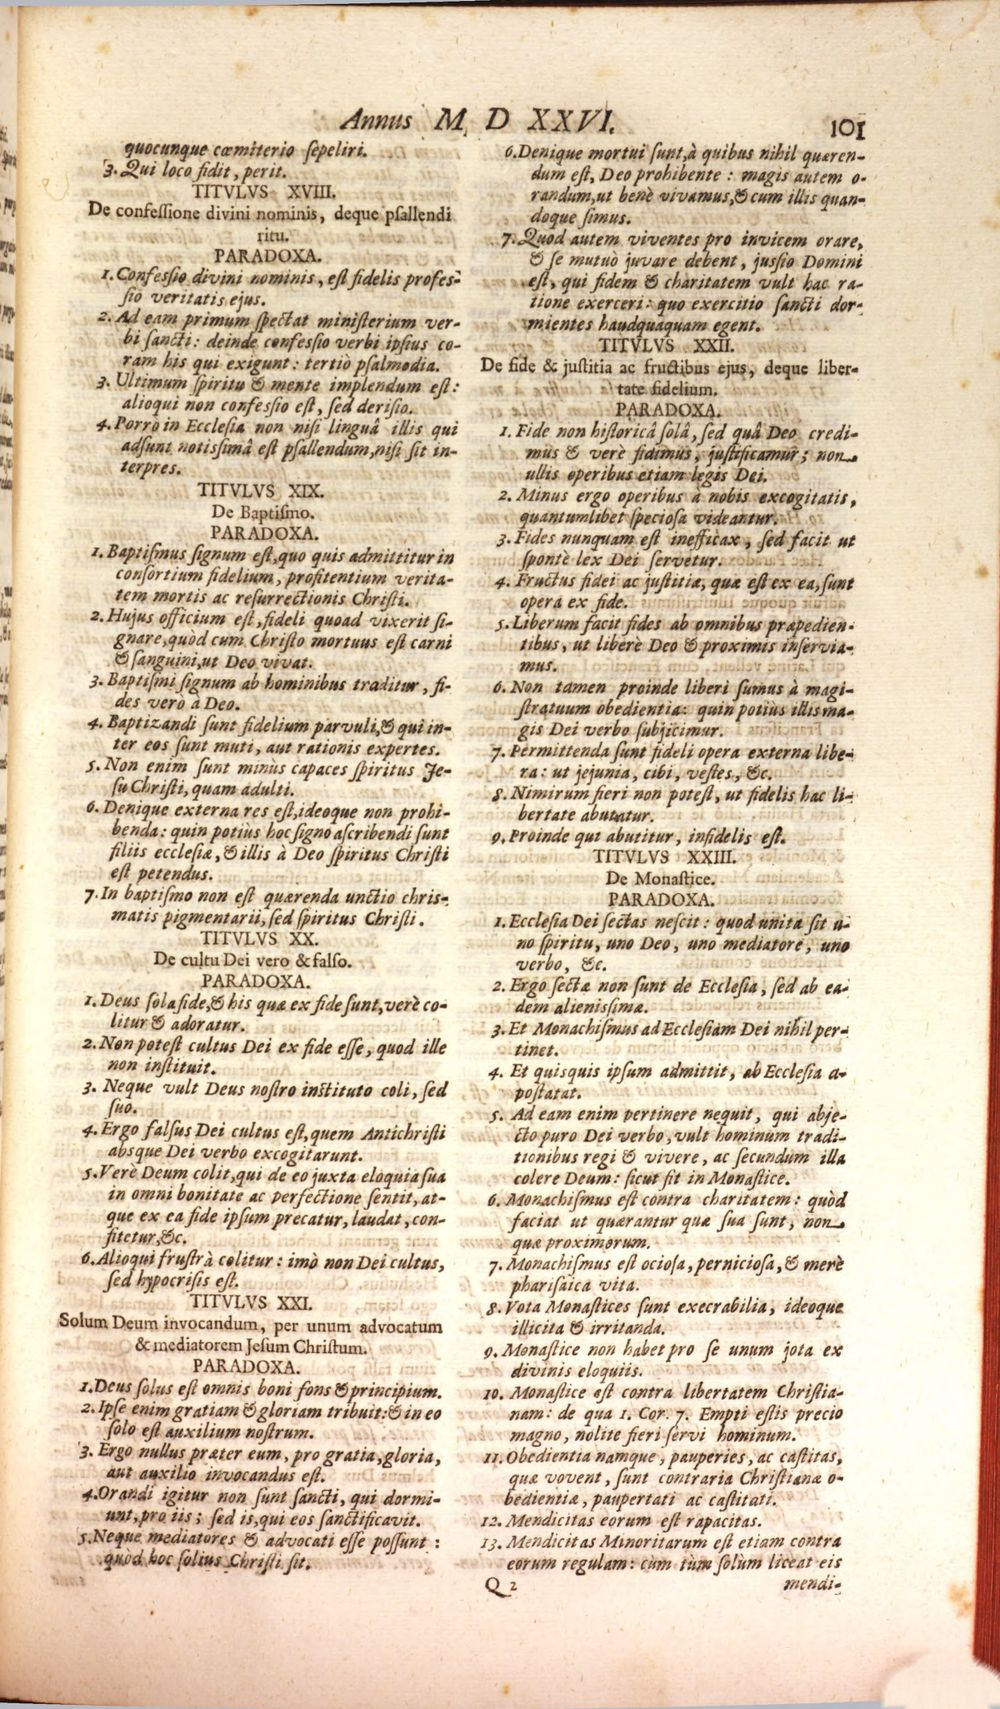 Annus M D XXVI.
101
quocunque cœmiterio sepeliri.
3. Qui loco fidit, perit.
TITVLVS XVIII.
De confessione divini nominis, deque psallendi
ritu.
PARADOXA.
1. Confessio divini nominis, est fidelis profes-
sio veritatis ejus.
2. Ad eam primum spectat ministerium ver-
bi sancti: deinde confessio verbi ipsius co-
ram his qui exigunt: tertiò psalmodia.
3. Ultimum spiritu & mente implendum est:
alioqui non confessio est, sed derisio.
4. Porrò in Ecclesia non nisi linguâ illis qui
adsunt notissimâ est psallendum, nisi sit in-
terpres.
TITVLVS XIX.
De Baptismo.
PARADOXA.
1. Baptismus signum est, quo quis admittitur in
consortium fidelium, profitentium verita-
tem mortis ac resurrectionis Christi.
2. Hujus officium est, fideli quoad vixerit si-
gnare, quòd cum Christo mortuus est carni
& sanguini, ut Deo vivat.
3. Baptismi signum ab hominibus traditur, fi-
des verò à Deo.
4. Baptizandi sunt fidelium parvuli, & qui in-
ter eos sunt muti, aut rationis expertes.
5. Non enim sunt minùs capaces spiritus Je-
su Christi, quam adulti.
6. Denique externa res est, ideoque non prohi-
benda: quin potiùs hoc signo ascribendi sunt
filiis ecclesiæ, & illis à Deo spiritus Christi
est petendus.
7. In baptismo non est quærenda unctio chris-
matis pigmentarii, sed spiritus Christi.
TITVLVS XX.
De cultu Dei vero & falso.
PARADOXA.
1. Deus sola fide, & his quæ ex fide sunt, verè co-
litur & adoratur.
2. Non potest cultus Dei ex fide esse, quod ille
non instituit.
3. Neque vult Deus nostro instituto coli, sed
suo.
4. Ergo falsus Dei cultus est, quem Antichristi
absque Dei verbo excogitarunt.
5. Verè Deum colit, qui de eo juxta eloquia sua
in omni bonitate ac perfectione sentit, at-
que ex ea fide ipsum precatur, laudat, con-
fitetur, &c.
6. Alioqui frustrà colitur: imò non Dei cultus,
sed hypocrisis est.
TITVLVS XXI.
Solum Deum invocandum, per unum advocatum
& mediatorem Jesum Christum.
PARADOXA.
1. Deus solus est omnis boni fons & principium.
2. Ipse enim gratiam & gloriam tribuit: & in eo
solo est auxilium nostrum.
3. Ergo nullus præter eum, pro gratia, gloria,
aut auxilio invocandus est.
4. Orandi igitur non sunt sancti, qui dormi-
unt, pro iis; sed is, qui eos sanctificavit.
5. Neque mediatores & advocati esse possunt:
quod hoc solius Christi sit.
6. Denique mortui sunt, à quibus nihil quæren-
dum est, Deo prohibente: magis autem o-
randum, ut benè vivamus, & cum illis quan-
doque simus.
7. Quod autem viventes pro invicem orare,
& se mutuò juvare debent, jussio Domini
est, qui fidem & charitatem vult hac ra-
tione exerceri: quo exercitio sancti dor-
mientes haudquaquam egent.
TITVLVS XXII.
De fide & justitia ac fructibus ejus, deque liber-
tate fidelium.
PARADOXA.
1. Fide non historicâ solâ, sed quâ Deo credi-
mus & verè fidimus, justificamur; non
ullis operibus etiam legis Dei.
2. Minus ergo operibus à nobis excogitatis,
quantumlibet speciosa videantur.
3. Fides nunquam est inefficax, sed facit ut
spontè lex Dei servetur.
4. Fructus fidei ac justitiæ, quæ est ex ea, sunt
opera ex fide.
5. Liberum facit fides ab omnibus præpedien-
tibus, ut liberè Deo & proximis inservia-
mus.
6. Non tamen proinde liberi sumus à magi-
stratuum obedientia: quin potius illis ma-
gis Dei verbo subjicimur.
7. Permittenda sunt fideli opera externa libe-
ra: ut jejunia, cibi, vestes, &c.
8. Nimirum fieri non potest, ut fidelis hac li-
bertate abutatur.
9. Proinde qui abutitur, infidelis est.
TITVLVS XXIII.
De Monastice.
PARADOXA.
1. Ecclesia Dei sectas nescit: quod unita sit u-
no spiritu, uno Deo, uno mediatore, uno
verbo, &c.
2. Ergo sectæ non sunt de Ecclesia, sed ab ea-
dem alienissimæ.
3. Et Monachismus ad Ecclesiam Dei nihil per-
tinet.
4. Et quisquis ipsum admittit, ab Ecclesia a-
postatat.
5. Ad eam enim pertinere nequit, qui abje-
cto puro Dei verbo, vult hominum tradi-
tionibus regi & vivere, ac secundùm illa
colere Deum: sicut fit in Monastice.
6. Monachismus est contra charitatem: quòd
faciat ut quærantur quæ sua sunt, non
quæ proximorum.
7. Monachismus est ociosa, perniciosa, & merè
pharisaica vita.
8. Vota Monastices sunt execrabilia, ideoque
illicita & irritanda.
9. Monastice non habet pro se unum jota ex
divinis eloquiis.
10. Monastice est contra libertatem Christia-
nam: de qua 1. Cor. 7. Empti estis precio
magno, nolite fieri servi hominum.
11. Obedientia namque, pauperies, ac castitas,
quæ vovent, sunt contraria Christianæ o-
bedientiæ, paupertati ac castitati.
12. Mendicitas eorum est rapacitas.
13. Mendicitas Minoritarum est etiam contra
eorum regulam: cùm tùm solùm liceat eis
Q 2
mendi-